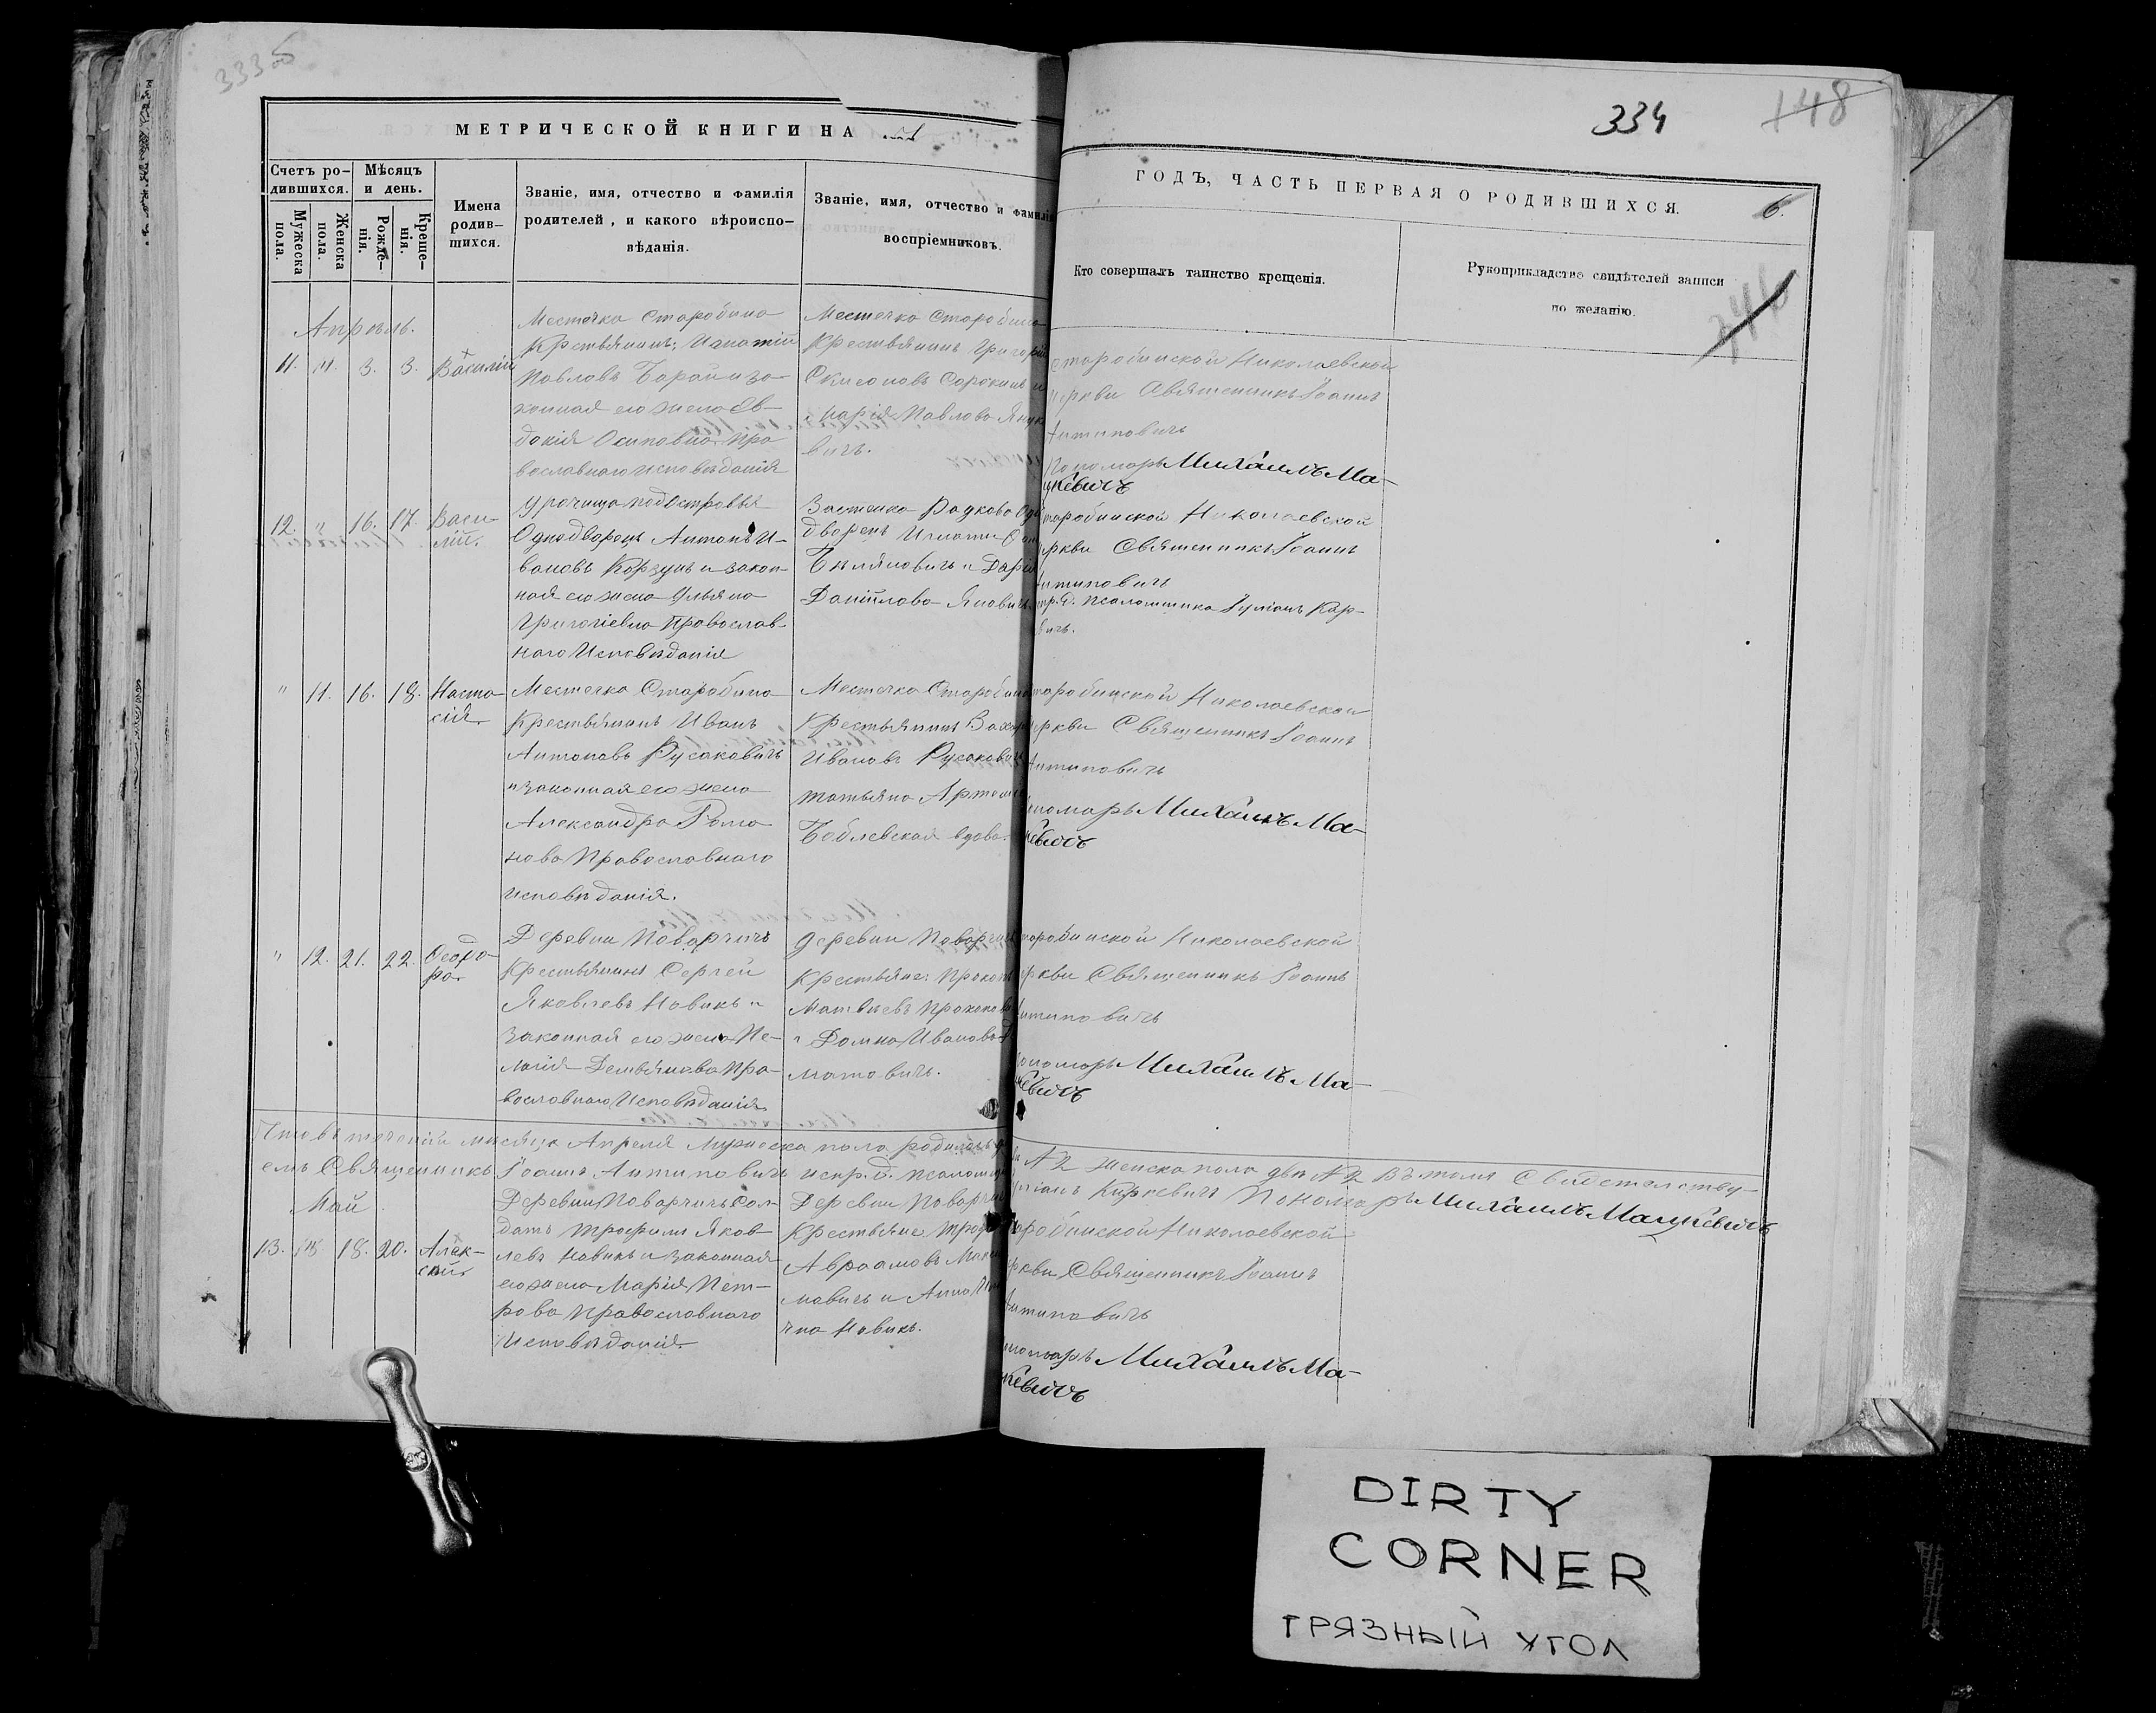 333 об
334
148
МЕТРИЧЕСКОЙ КНИГИ НА
ГОДЪ, ЧАСТЬ ПЕРВАЯ О РОДИВШИХСЯ.
6.
Счетъ ро-
дившихся.
Мужеска пола.
Женска пола.
Мѣсяцъ
и день.
Рожде-
нія.
Креще-
нія.
Имена
родив-
шихся.
Званіе, имя, отчество и фамилія
родителей, и какого вѣроиспо-
вѣданія.
Званіе, имя, отчество и фамилія
воспріемниковъ.
Кто совершалъ таинство крещенія.
Рукоприкладство свидѣтелей записи
по желанію.
Апрѣль.
11. "". 3. 3. Василій
Местечка Старобина
Крстьянинъ Игнатій
Павловъ Баранъ и за-
конная его жена Ев-
докія Осиповна Пра
вославнаго исповѣданія
Местечка Старобина
Крестьянинъ Григорій
Сорокинъ и
Марія Павлова
вичъ.
Старобинской Николаевской
церкви Священникъ Іоаннъ
Антиповичъ
Пономарь Михаилъ Ма-
цкевичъ
12. " 16. 17. Васи-
лій.
Урочища подостровья
Однодворецъ Антонъ И-
вановъ Корзунъ и закон-
ная его жена Ульяна
Григоріевна Православ-
наго Исповѣданія
Застенка Радково Одно
дворецъ Игнатій
и Дарія
Даніилова Яновичъ.
Старобинской Николаевской
церкви Священникъ Іоаннъ
Антиповичъ
испр. д. псаломщика Іуліанъ Кар-
вичъ.
" 11. 16. 18. Наста
сія.
Местечка Старобина
Крестьянинъ Иванъ
Антоновъ Русаковичъ
и законная его жена
Александра Рома
нова Православнаго
исповѣданія.
Местечка Старобина
Крестьянинъ Захар
Ивановъ Русаковичъ
татьяна Артем
Боблевская вдова.
Старобинской Николаевской
церкви Священникъ Іоаннъ
Антиповичъ
Пономарь Михаилъ Ма-
цкевичъ
" 12. 21. 22. Ѳеодо-
ра.
Деревни Поварчичъ
Крестьянинъ Сергей
Яковлевъ Новикъ и
законная его жена Пе-
лагія Демьянова Пра-
вославнаго Исповѣданія
деревни Поварчичъ
Крестьяне: Прокопъ
Матвѣевъ
и Домна Иванова
матовичъ.
Старобинской Николаевской
церкви Священникъ Іоаннъ
Антиповичъ
Пономарь Михаилъ Ма-
цкевичъ
Что въ теченіи мѣсяца Апреля Мужеска пола родилось два № 2 женска пола два № 2 Въ томъ Свидетельству-
емъ Священникъ Іоаннъ Антиповичъ испр. д. псаломщика Іуліанъ Каркевичъ Пономарь Михаилъ Мацкевичъ
Май
13. "" 18. 20. Алек-
сѣй.
Деревни Поварчичъ Сол-
датъ Трофимъ Яков-
левъ Новикъ и законная
его жена Марія Пет-
рова Православнаго
Исповѣданія
Деревни Поварчичъ
Крестьяне Троф
Авраамовъ
мовичъ и Анна
чна Новикъ.
Старобинской Николаевской
церкви Священникъ Іоаннъ
Антиповичъ
Пономарь Михаилъ Ма-
цкевичъ
DIRTY
CORNER
ГРЯЗНЫЙ УГОЛ